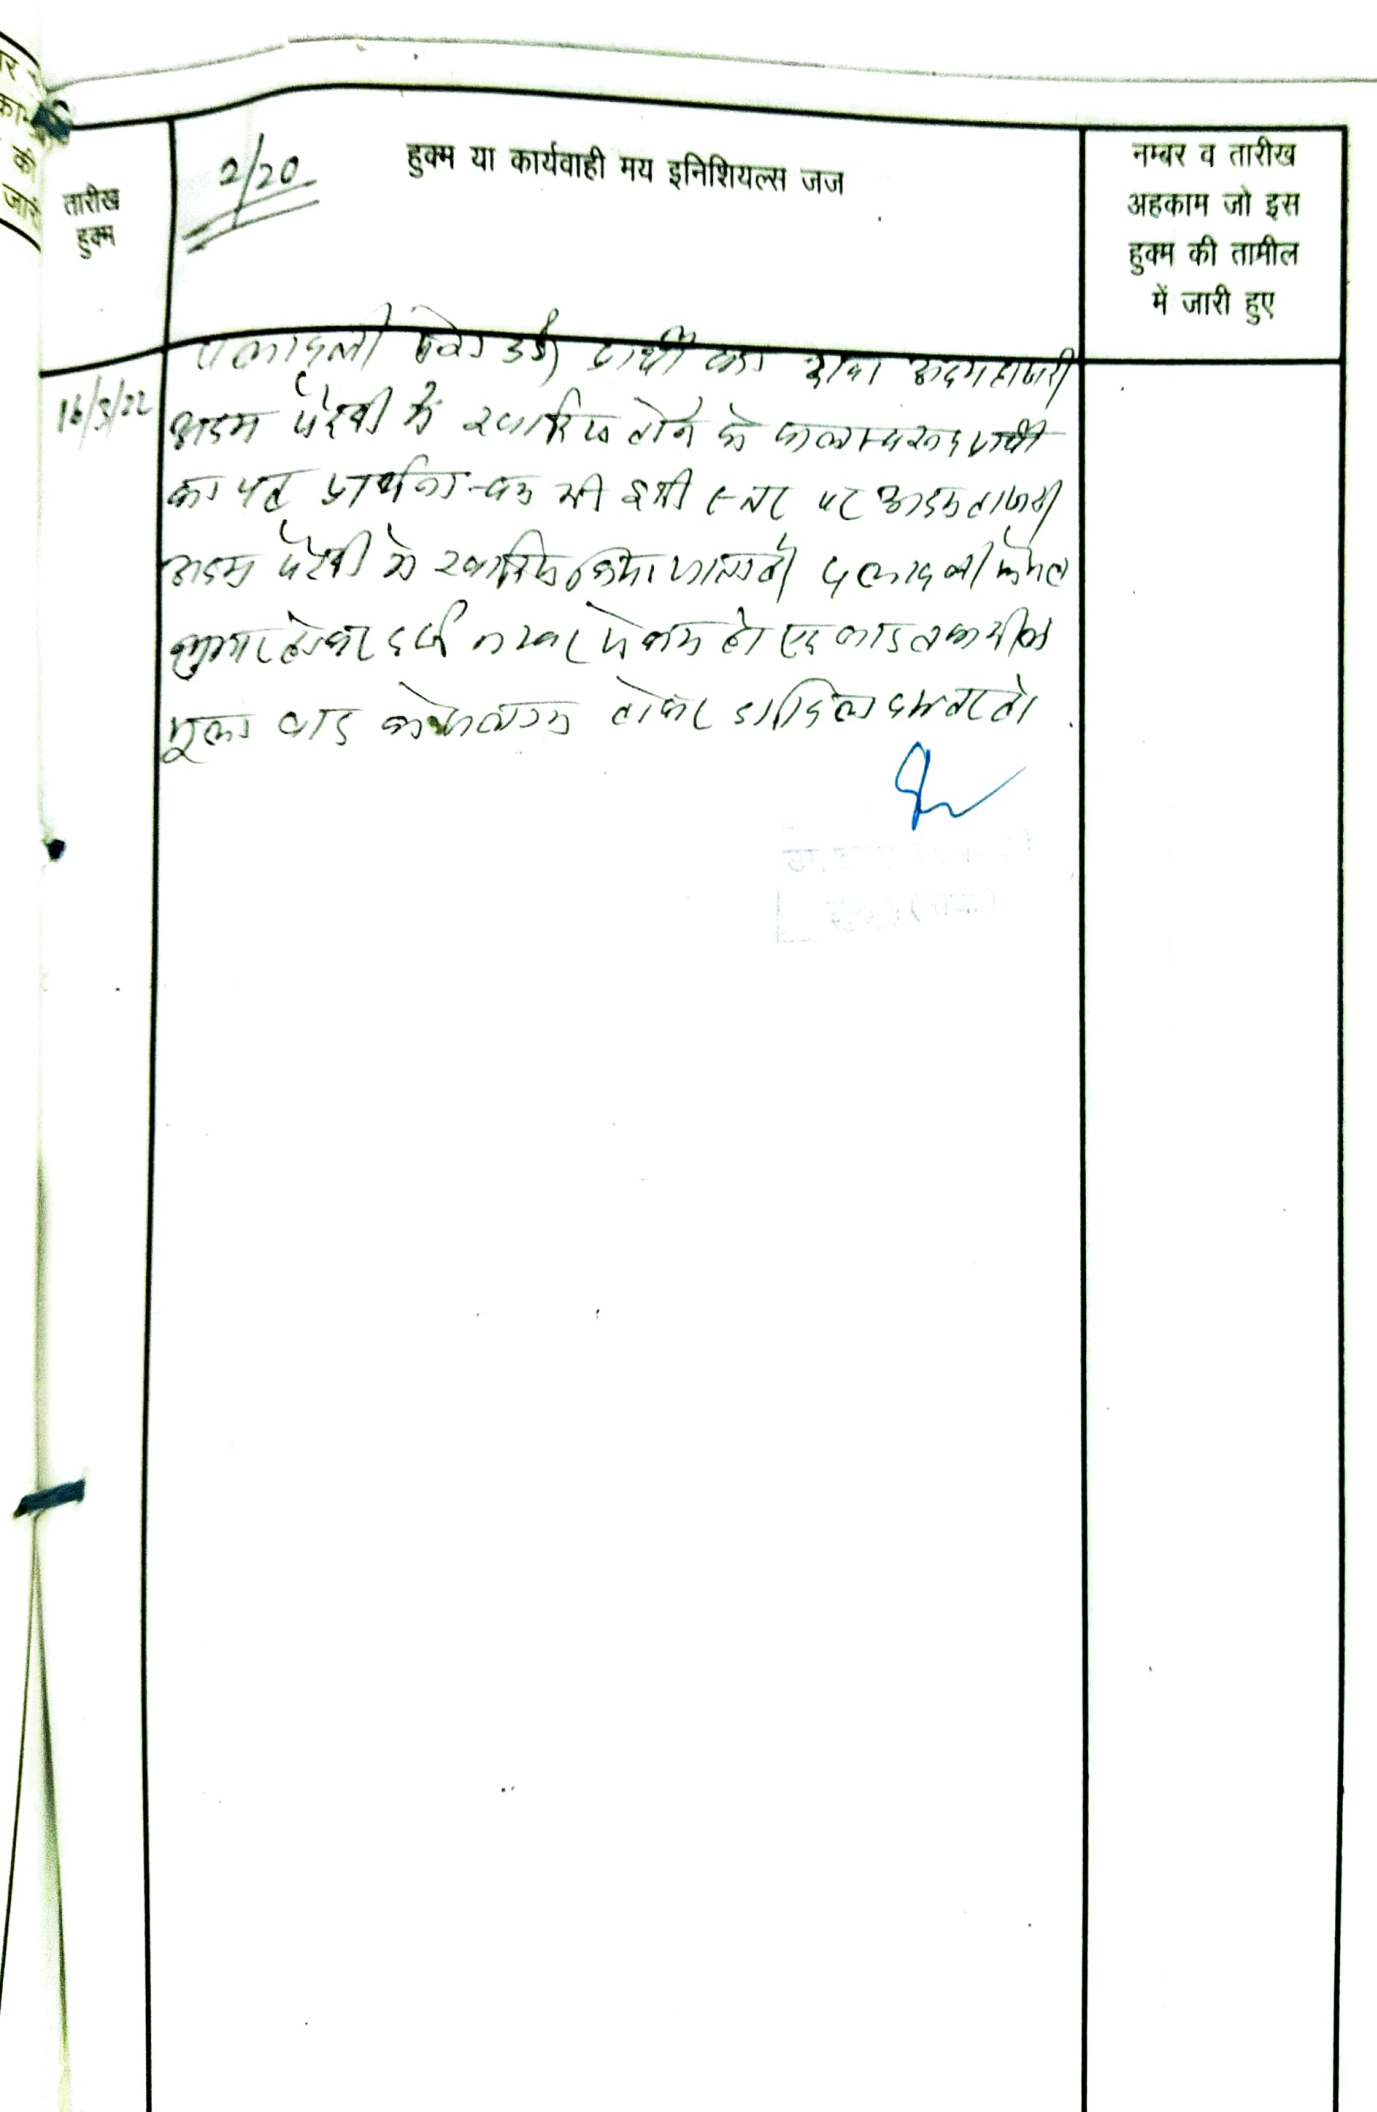 तारीख
हुक्म
2/20
हुक्म या कार्यवाही मय इनिशियल्स जज
नम्बर व तारीख
अहकाम जो इस
हुक्म की तामील
में जारी हुए
16/5/22
पत्रावली पेश हुई। प्रार्थी का दावा अदम हाजरी
अदम पैरवी में खारिज होने के फलस्वरूप प्रार्थी
का यह प्रार्थना-पत्र भी इसी स्तर पर अदम हाजरी
अदम पैरवी में खारिज किया जाता है। पत्रावली फैसल
शुमार होकर दर्ज नम्बर से कम हो एवं बाद तकमील
मूल वाद के संलग्न होकर दाखिल दफ्तर हो।
(राज.)